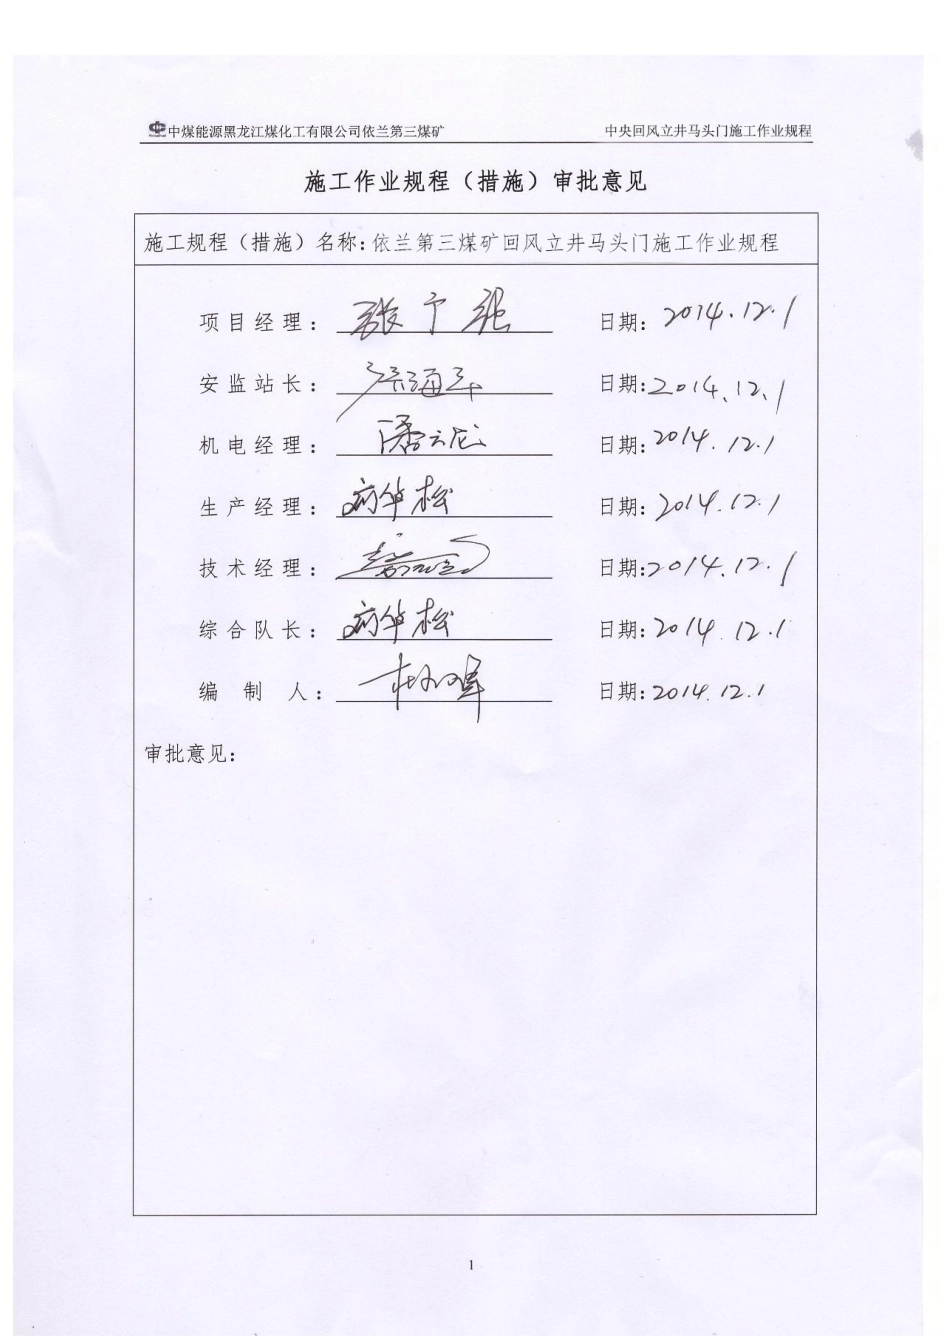 中煤能源黑龙江煤化工有限公司依兰第三煤矿 中央回风立井马头门施工作业规程
施工作业规程（措施）审批意见
施工规程（措施）名称：依兰第三煤矿回风立井马头门施工作业规程
项目经理： 日期：2014.12.1
安监站长： 日期：2014.12.1
机电经理：潘云龙 日期：2014.12.1
生产经理： 日期：2014.12.1
技术经理： 日期：2014.12.1
综合队长： 日期：2014.12.1
编制人： 日期：2014.12.1
审批意见：
1